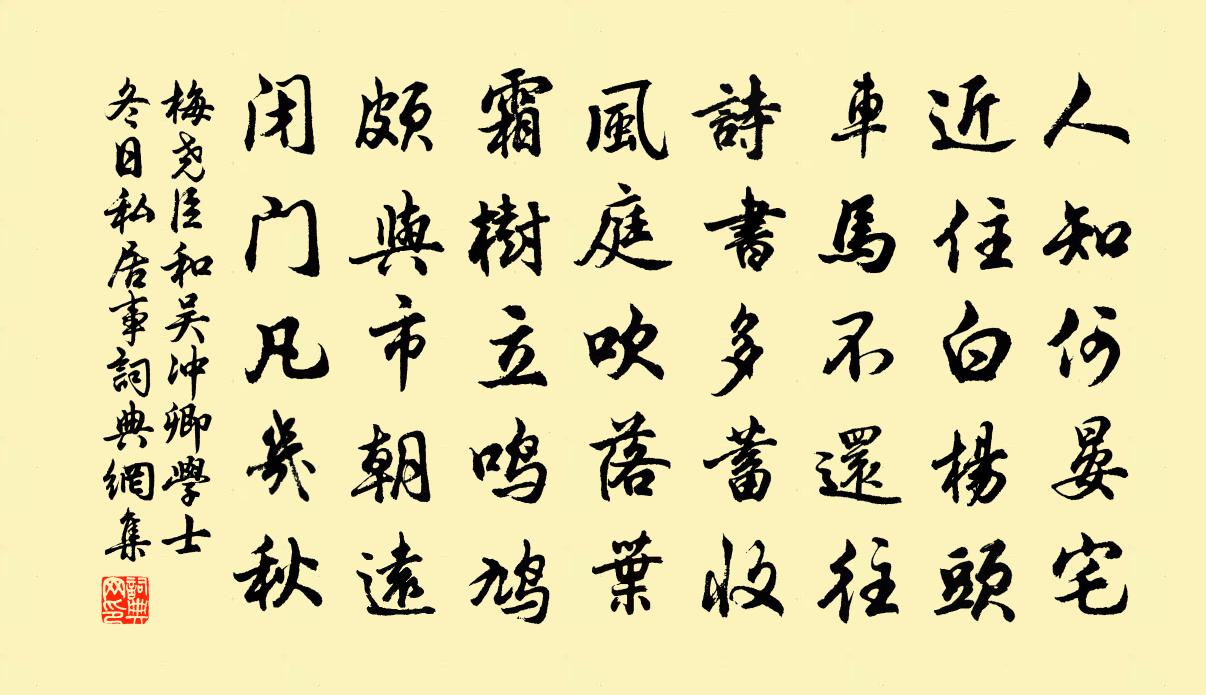 人知何晏宅
近住白楊頭
車馬不還往
詩書多蓄收
風庭吹落葉
霜樹立鸣鳩
頗與市朝遠
闭门凡幾秋
梅尧臣和吴冲卿學士
冬日私居事詞典網集
詞典
网印